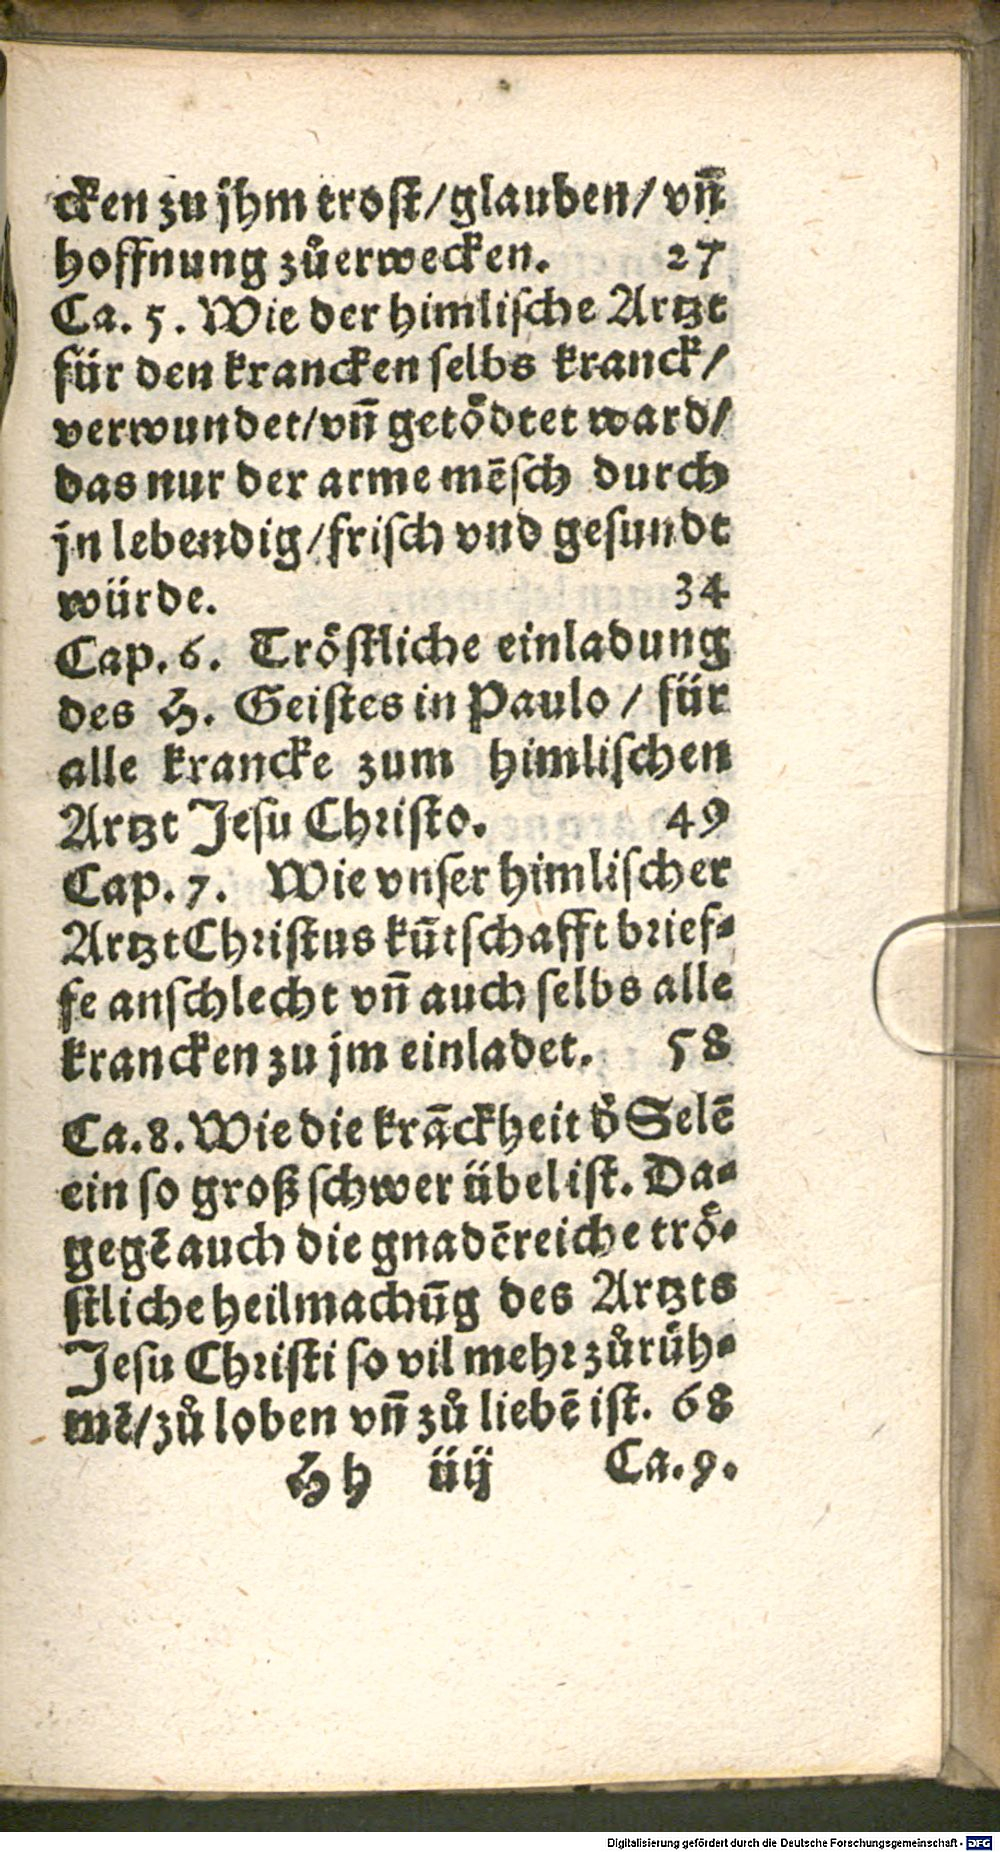 cken zu jhm trost/glauben/ vñ
hoffnung zůerwecken. 27
Ca. 5. Wie der himlische Artzt
für den krancken selbs kranck/
verwundet/vñ getödtet ward/
das nur der arme mẽsch durch
jn lebendig/frisch vnd gesundt
würde. 34
Cap. 6. Tröstliche einladung
des H. Geistes in Paulo / für
alle krancke zum himlischen
Artzt Jesu Christo. 49
Cap. 7. Wie vnser himlischer
Artzt Christus kũtschafft brief-
fe anschlecht vñ auch selbs alle
krancken zu jm einladet. 58
Ca. 8. Wie die krãckheit d' Selẽ
ein so groß schwer übel ist. Da-
gegẽ auch die gnadẽreiche trö-
stliche heilmachũg des Artzts
Jesu Christi so vil mehr zůrüh-
mẽ/zů loben vñ zů liebẽ ist. 68
Hh iiij Ca. 9.
Digitalisierung gefördert durch die Deutsche Forschungsgemeinschaft - DFG